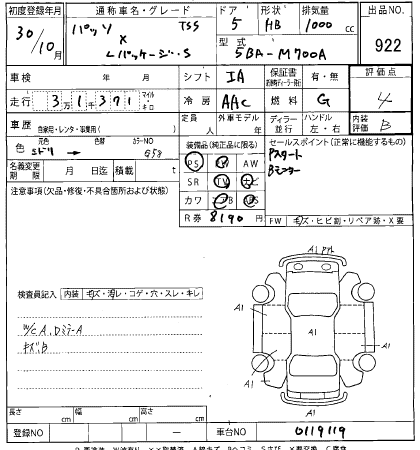 初度登録年月 通称車名・グレード ドア 形状 排気量 出品NO
30/10月 パッソ TSS 5 HB 1000cc
X
Lパッケージ・S 型式 5BA-M700A 922
車検 年 月 シフト IA 保証書 有・無 評価点
走行 3万1千371 マイル・キロ 冷房 AAC 燃料 G 4
車歴 自家用・レンタ・事業用( ) 定員 人 外車モデル 年 ディーラー 並行 ハンドル 左・右 内装評価 B
色 元色 ミドリ → 色替 カラーNO G58 装備品(純正品に限る) セールスポイント(正常に機能するもの)
PS PW AW Pスタート
名義変更期限 月 日迄 積載 t SR TV ナビ Bモニター
注意事項(欠品・修復・不具合箇所および状態) カワ エアB ABS
R券 8190 円 FW キズ・ヒビ割・リペア跡・X要
A1 アンテナ
検査員記入 内装 キズ・汚レ・コゲ・穴・スレ・キレ
A1 A1 A1
W/C A.DミラーA
キズ.B
A1 A1
A1
長さ cm 幅 cm 高さ cm
登録NO 車台NO 0119119